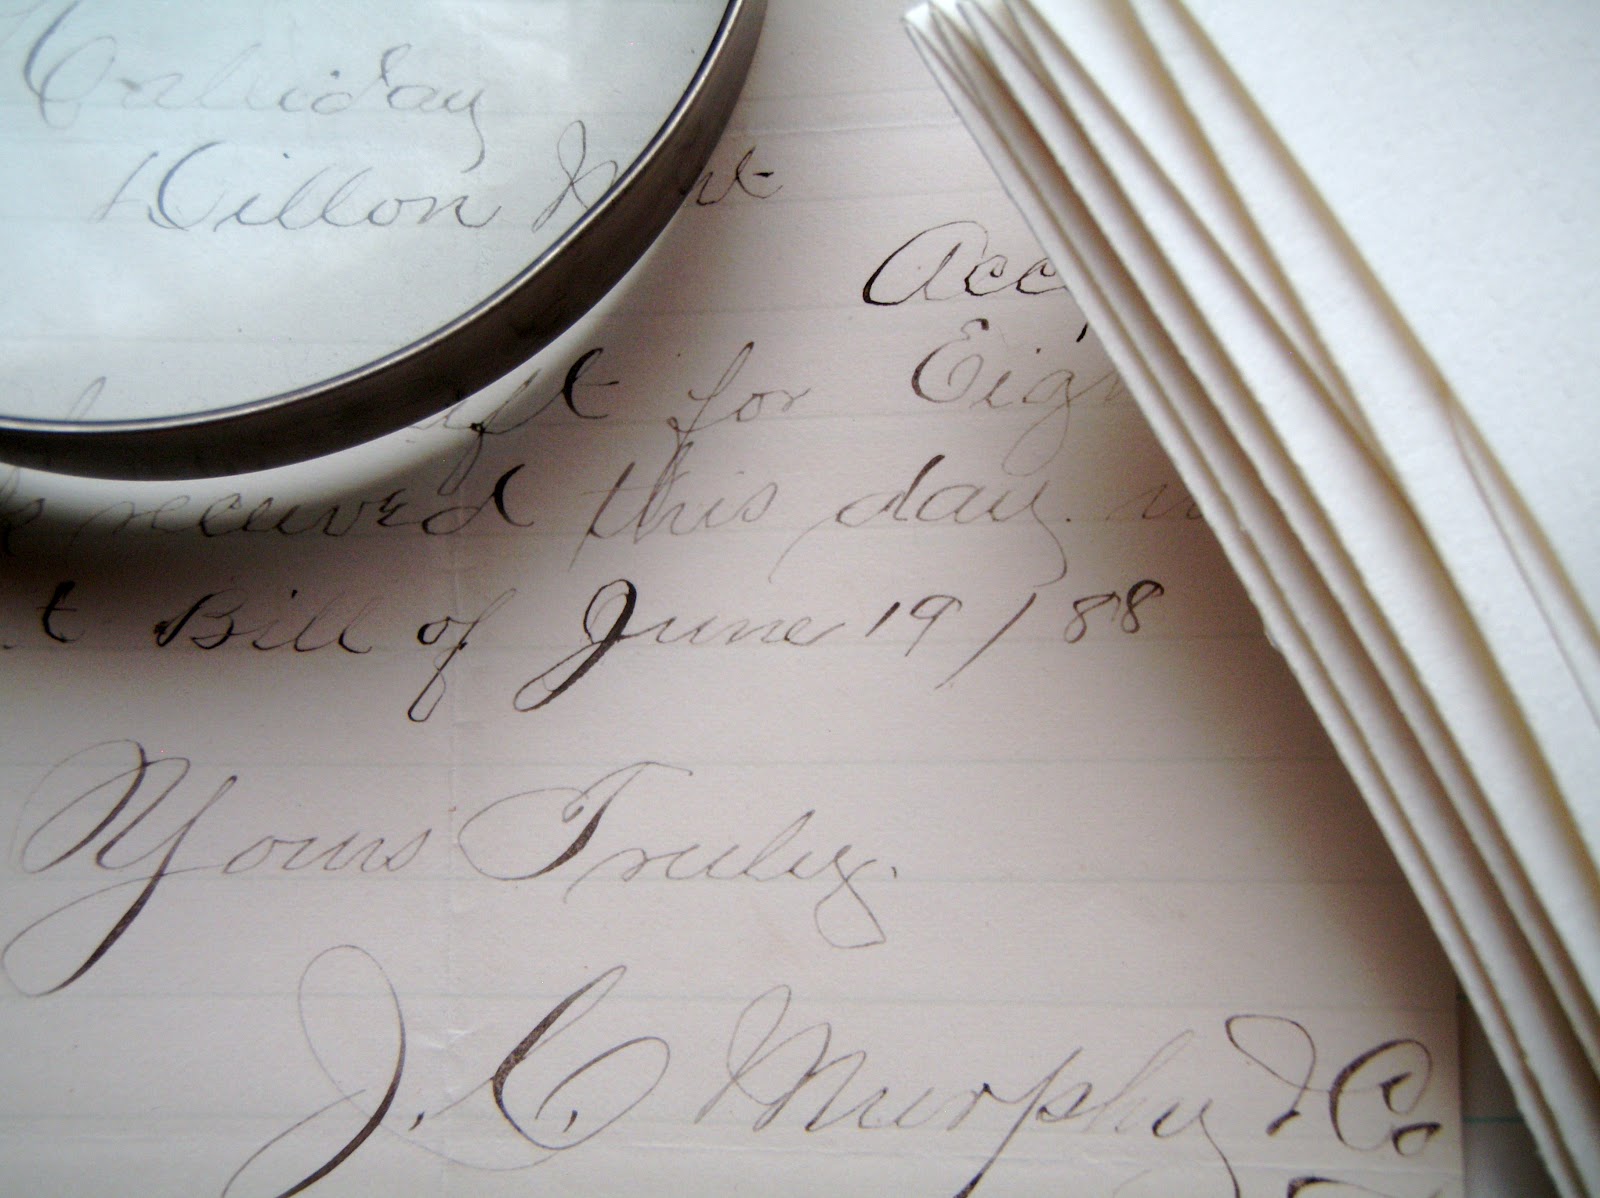 Halliday
Dillon
Acc
for Eigh
received this day
Bill of June 19 / 88
Yours Truly.
J. C. Murphy & Co